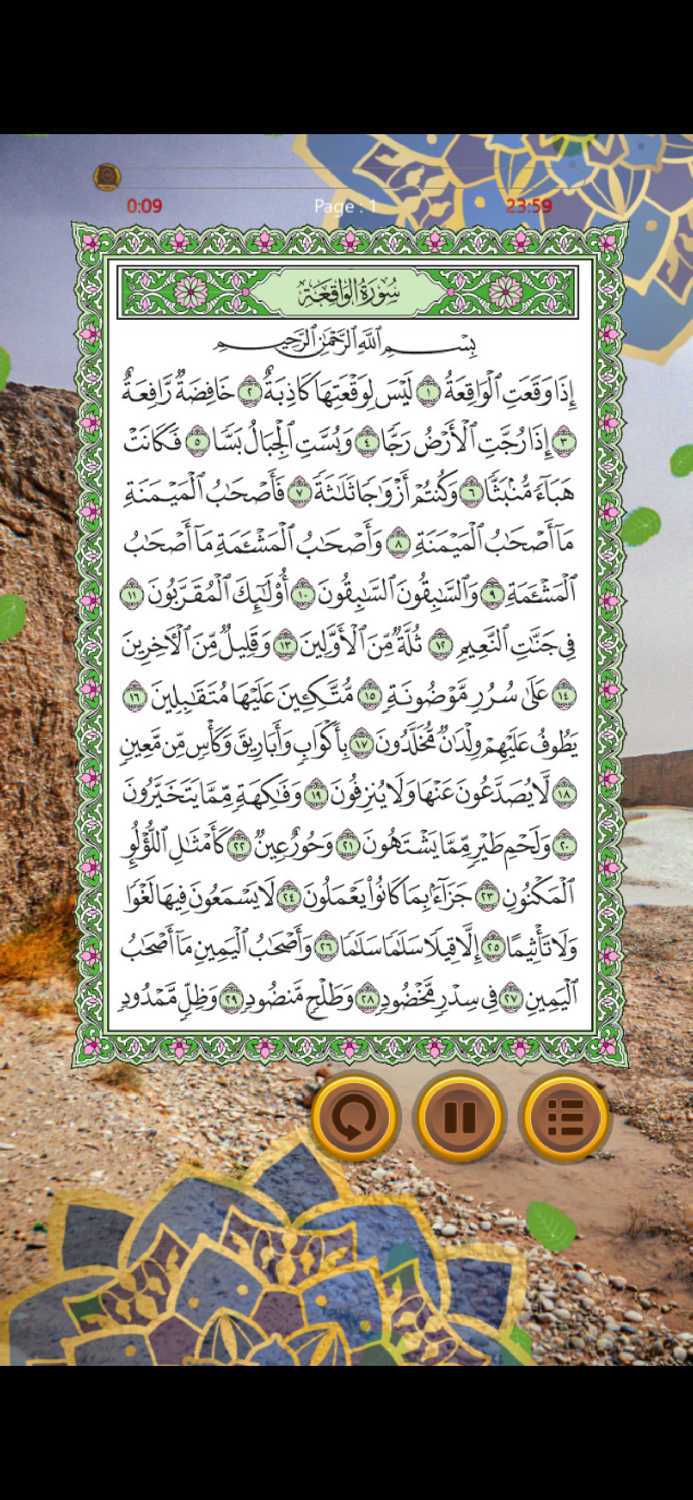 0:09 Page : 1 23:59
سُورَةُ الوَاقِعَة
بِسْمِ ٱللَّهِ ٱلرَّحْمَٰنِ ٱلرَّحِيمِ
إِذَا وَقَعَتِ ٱلْوَاقِعَةُ ١ لَيْسَ لِوَقْعَتِهَا كَاذِبَةٌ ٢ خَافِضَةٌ رَّافِعَةٌ
٣ إِذَا رُجَّتِ ٱلْأَرْضُ رَجًّا ٤ وَبُسَّتِ ٱلْجِبَالُ بَسًّا ٥ فَكَانَتْ
هَبَآءً مُّنۢبَثًّا ٦ وَكُنتُمْ أَزْوَٰجًا ثَلَٰثَةً ٧ فَأَصْحَٰبُ ٱلْمَيْمَنَةِ
مَآ أَصْحَٰبُ ٱلْمَيْمَنَةِ ٨ وَأَصْحَٰبُ ٱلْمَشْـَٔمَةِ مَآ أَصْحَٰبُ
ٱلْمَشْـَٔمَةِ ٩ وَٱلسَّٰبِقُونَ ٱلسَّٰبِقُونَ ١٠ أُو۟لَٰٓئِكَ ٱلْمُقَرَّبُونَ ١١
فِى جَنَّٰتِ ٱلنَّعِيمِ ١٢ ثُلَّةٌ مِّنَ ٱلْأَوَّلِينَ ١٣ وَقَلِيلٌ مِّنَ ٱلْءَاخِرِينَ
١٤ عَلَىٰ سُرُرٍ مَّوْضُونَةٍ ١٥ مُّتَّكِـِٔينَ عَلَيْهَا مُتَقَٰبِلِينَ ١٦
يَطُوفُ عَلَيْهِمْ وِلْدَٰنٌ مُّخَلَّدُونَ ١٧ بِأَكْوَابٍ وَأَبَارِيقَ وَكَأْسٍ مِّن مَّعِينٍ
١٨ لَّا يُصَدَّعُونَ عَنْهَا وَلَا يُنزِفُونَ ١٩ وَفَٰكِهَةٍ مِّمَّا يَتَخَيَّرُونَ
٢٠ وَلَحْمِ طَيْرٍ مِّمَّا يَشْتَهُونَ ٢١ وَحُورٌ عِينٌ ٢٢ كَأَمْثَٰلِ ٱللُّؤْلُؤِ
ٱلْمَكْنُونِ ٢٣ جَزَآءًۢ بِمَا كَانُوا۟ يَعْمَلُونَ ٢٤ لَا يَسْمَعُونَ فِيهَا لَغْوًا
وَلَا تَأْثِيمًا ٢٥ إِلَّا قِيلًا سَلَٰمًا سَلَٰمًا ٢٦ وَأَصْحَٰبُ ٱلْيَمِينِ مَآ أَصْحَٰبُ
ٱلْيَمِينِ ٢٧ فِى سِدْرٍ مَّخْضُودٍ ٢٨ وَطَلْحٍ مَّنضُودٍ ٢٩ وَظِلٍّ مَّمْدُودٍ